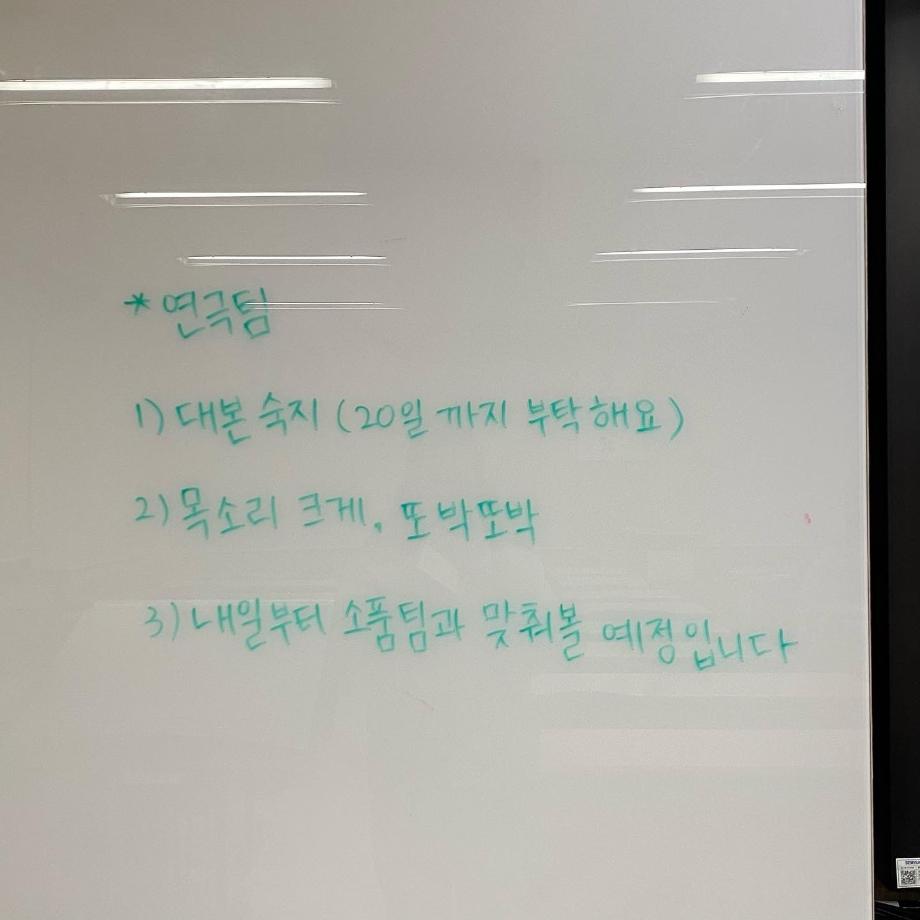 * 연극팀
1) 대본 숙지 (20일 까지 부탁해요)
2) 목소리 크게, 또박또박
3) 내일부터 소품팀과 맞춰볼 예정입니다